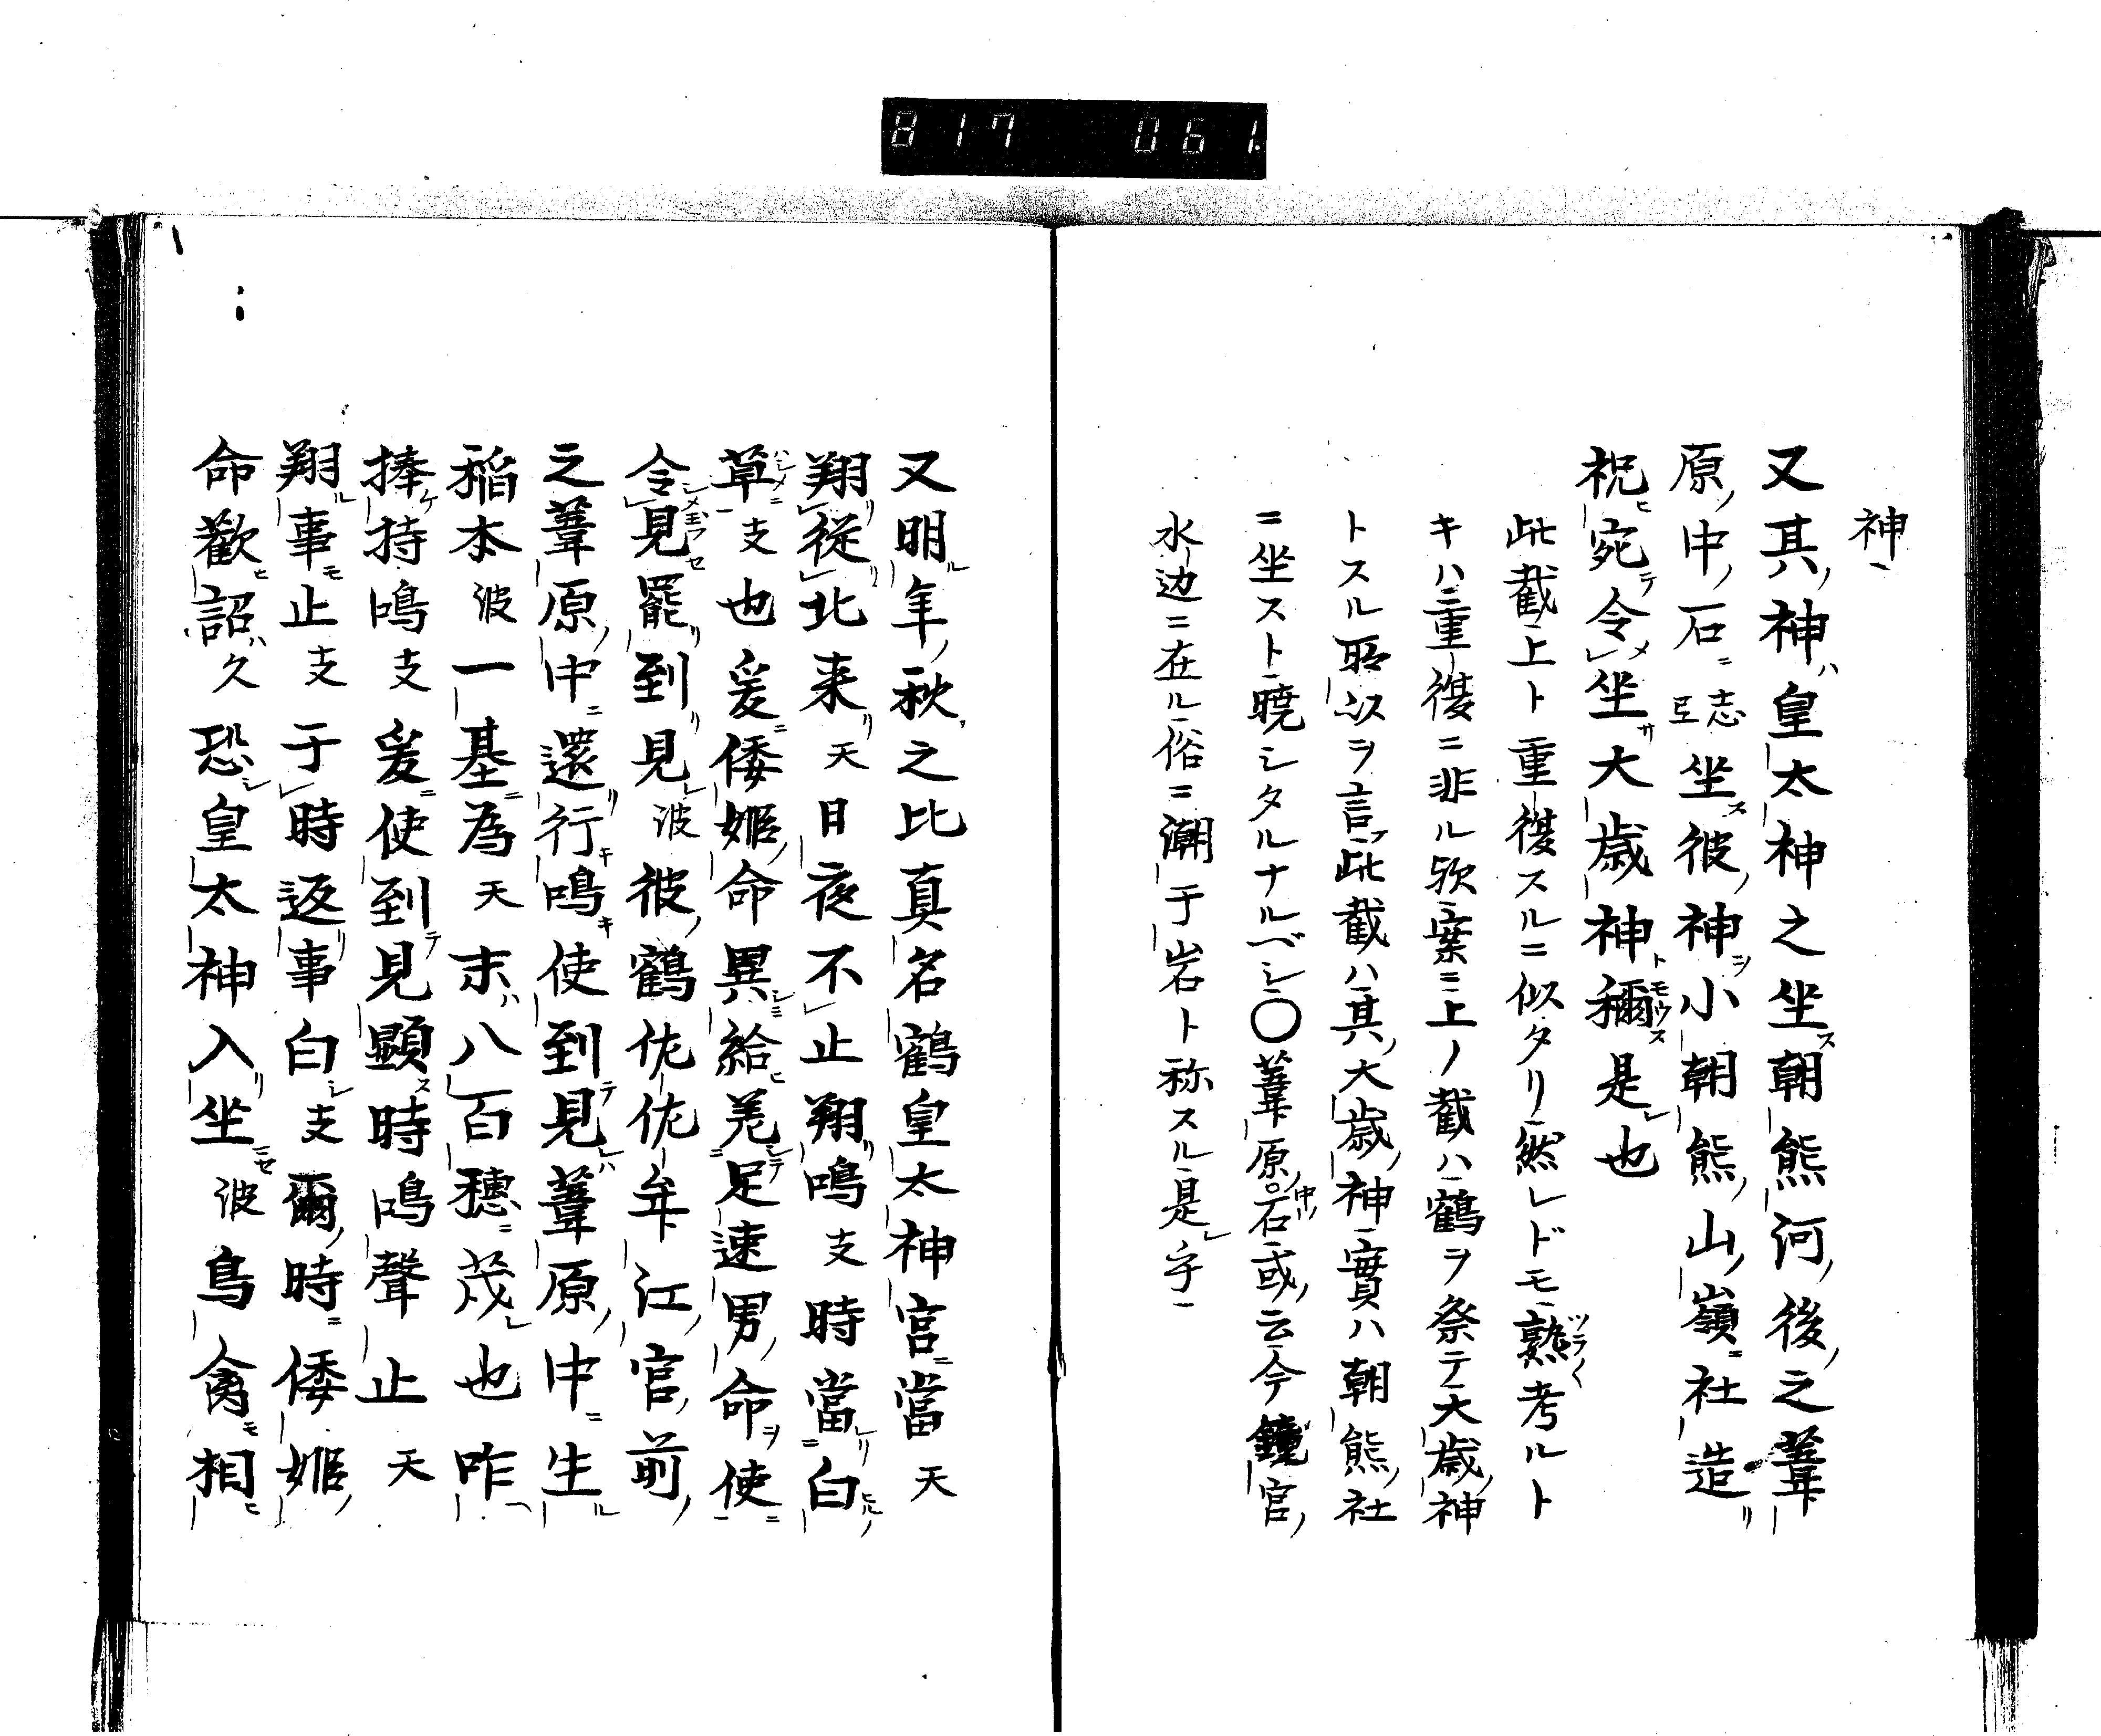 817 061
神
又其神皇太神之坐朝熊河後之葦
原中石志坐彼神小朝熊山嶺社造
祝宛令坐大歳神稱是也
此截上ト重複スルニ似タリ然レドモ熟考ルト
キハ重複ニ非ル歟案ニ上ノ截ハ鶴ヲ祭テ大歳神
トスル所以ヲ言此截ハ其大歳神實ハ朝熊社
ニ坐スト曉シタルナルベシ〇葦原中石或云今鏡宮
水边ニ在ル俗ニ潮干岩ト称スル是乎
又明年秋之比真名鶴皇太神宮當天
翔従北来天日夜不止翔鳴支時當白
草支也爰倭姫命異給羌足速男命使
令見罷到見波彼鶴佐佐牟江宮前
之葦原中還行鳴使到見葦原中生
稲本波一基為天末八百穂茂也咋
捧持鳴支爰使到見顕時鳴聲止天
翔事止支于時返事白支爾時倭姫
命歡詔久恐皇太神入坐波鳥禽相